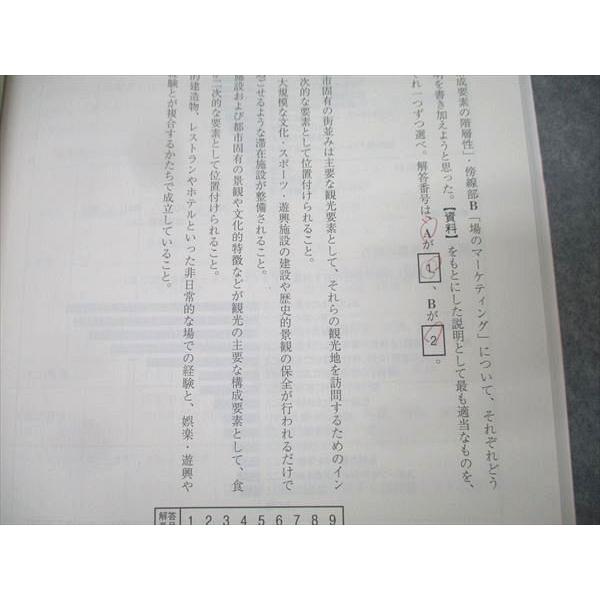 成要素の階層性」・傍線部B「場のマーケティング」について、それぞれどう
を書き加えようと思った。【資料】をもとにした説明として最も適当なものを、
れ一つずつ選べ。解答番号は、Aが1、Bが2。
市固有の街並みは主要な観光要素として、それらの観光地を訪問するためのイン
次的な要素として位置付けられること。
大規模な文化・スポーツ・遊興施設の建設や歴史的景観の保全が行われるだけで
させるような滞在施設が整備されること。
施設および都市固有の景観や文化的特徴などが観光の主要な構成要素として、食
二次的な要素として位置付けられること。
的建造物、レストランやホテルといった非日常的な場での経験と、娯楽・遊興や
験とが複合するかたちで成立していること。
解答 1 2 3 4 5 6 7 8 9